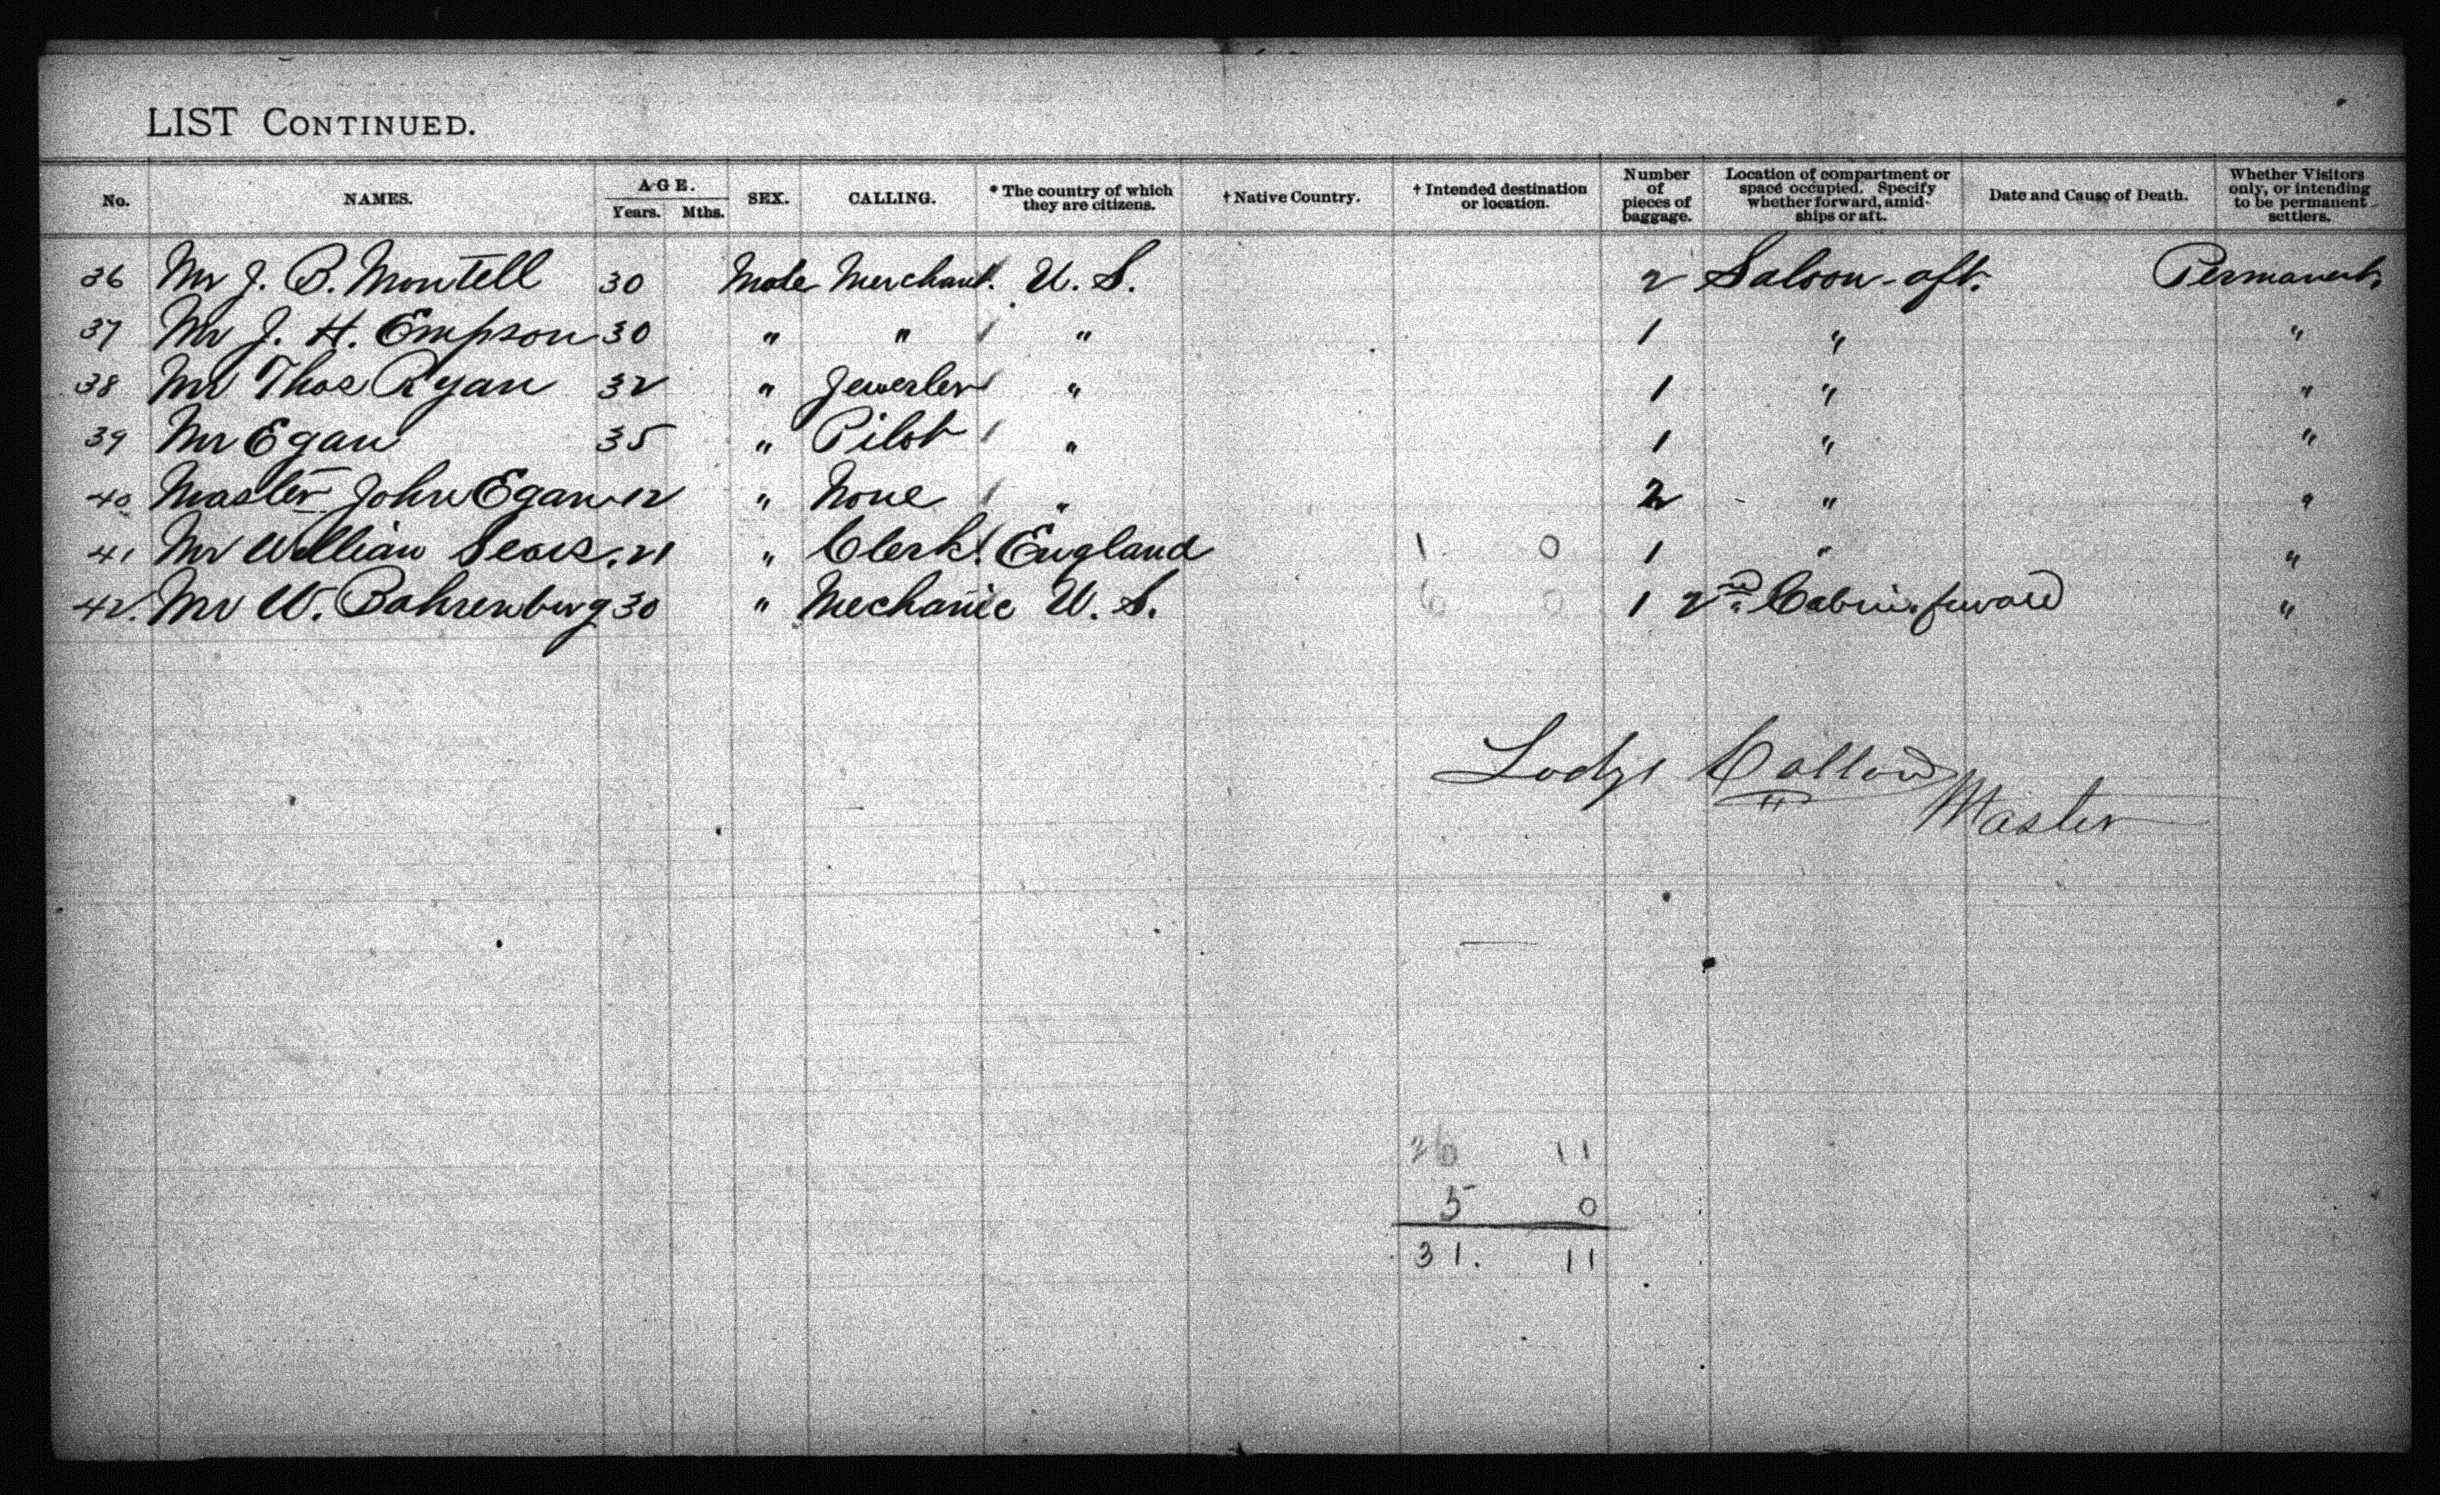 LIST CONTINUED.
No. NAMES. AGE. Years. Mths. SEX. CALLING. * The country of which they are citizens. † Native Country. † Intended destination or location. Number of pieces of baggage. Location of compartment or space occupied. Specify whether forward, amidships or aft. Date and Cause of Death. Whether Visitors only, or intending to be permanent settlers.
36 Mr J. B. Montell 30 Male Merchant. U. S. 2 Saloon-aft. Permanent.
37 Mr J. H. Empson 30 " " " 1 " "
38 Mr Thos Ryan 32 " Jewerler " 1 " "
39 Mr Egan 35 " Pilot " 1 " "
40 Master John Egan 12 " None " 2 " "
41 Mr William Sears. 21 " Clerk England 1 0 1 " "
42. Mr W. Bahrenburg 30 " Mechanic U. S. 6 0 1 2nd Cabin. forward "
Master
26 11
5 0
31. 11